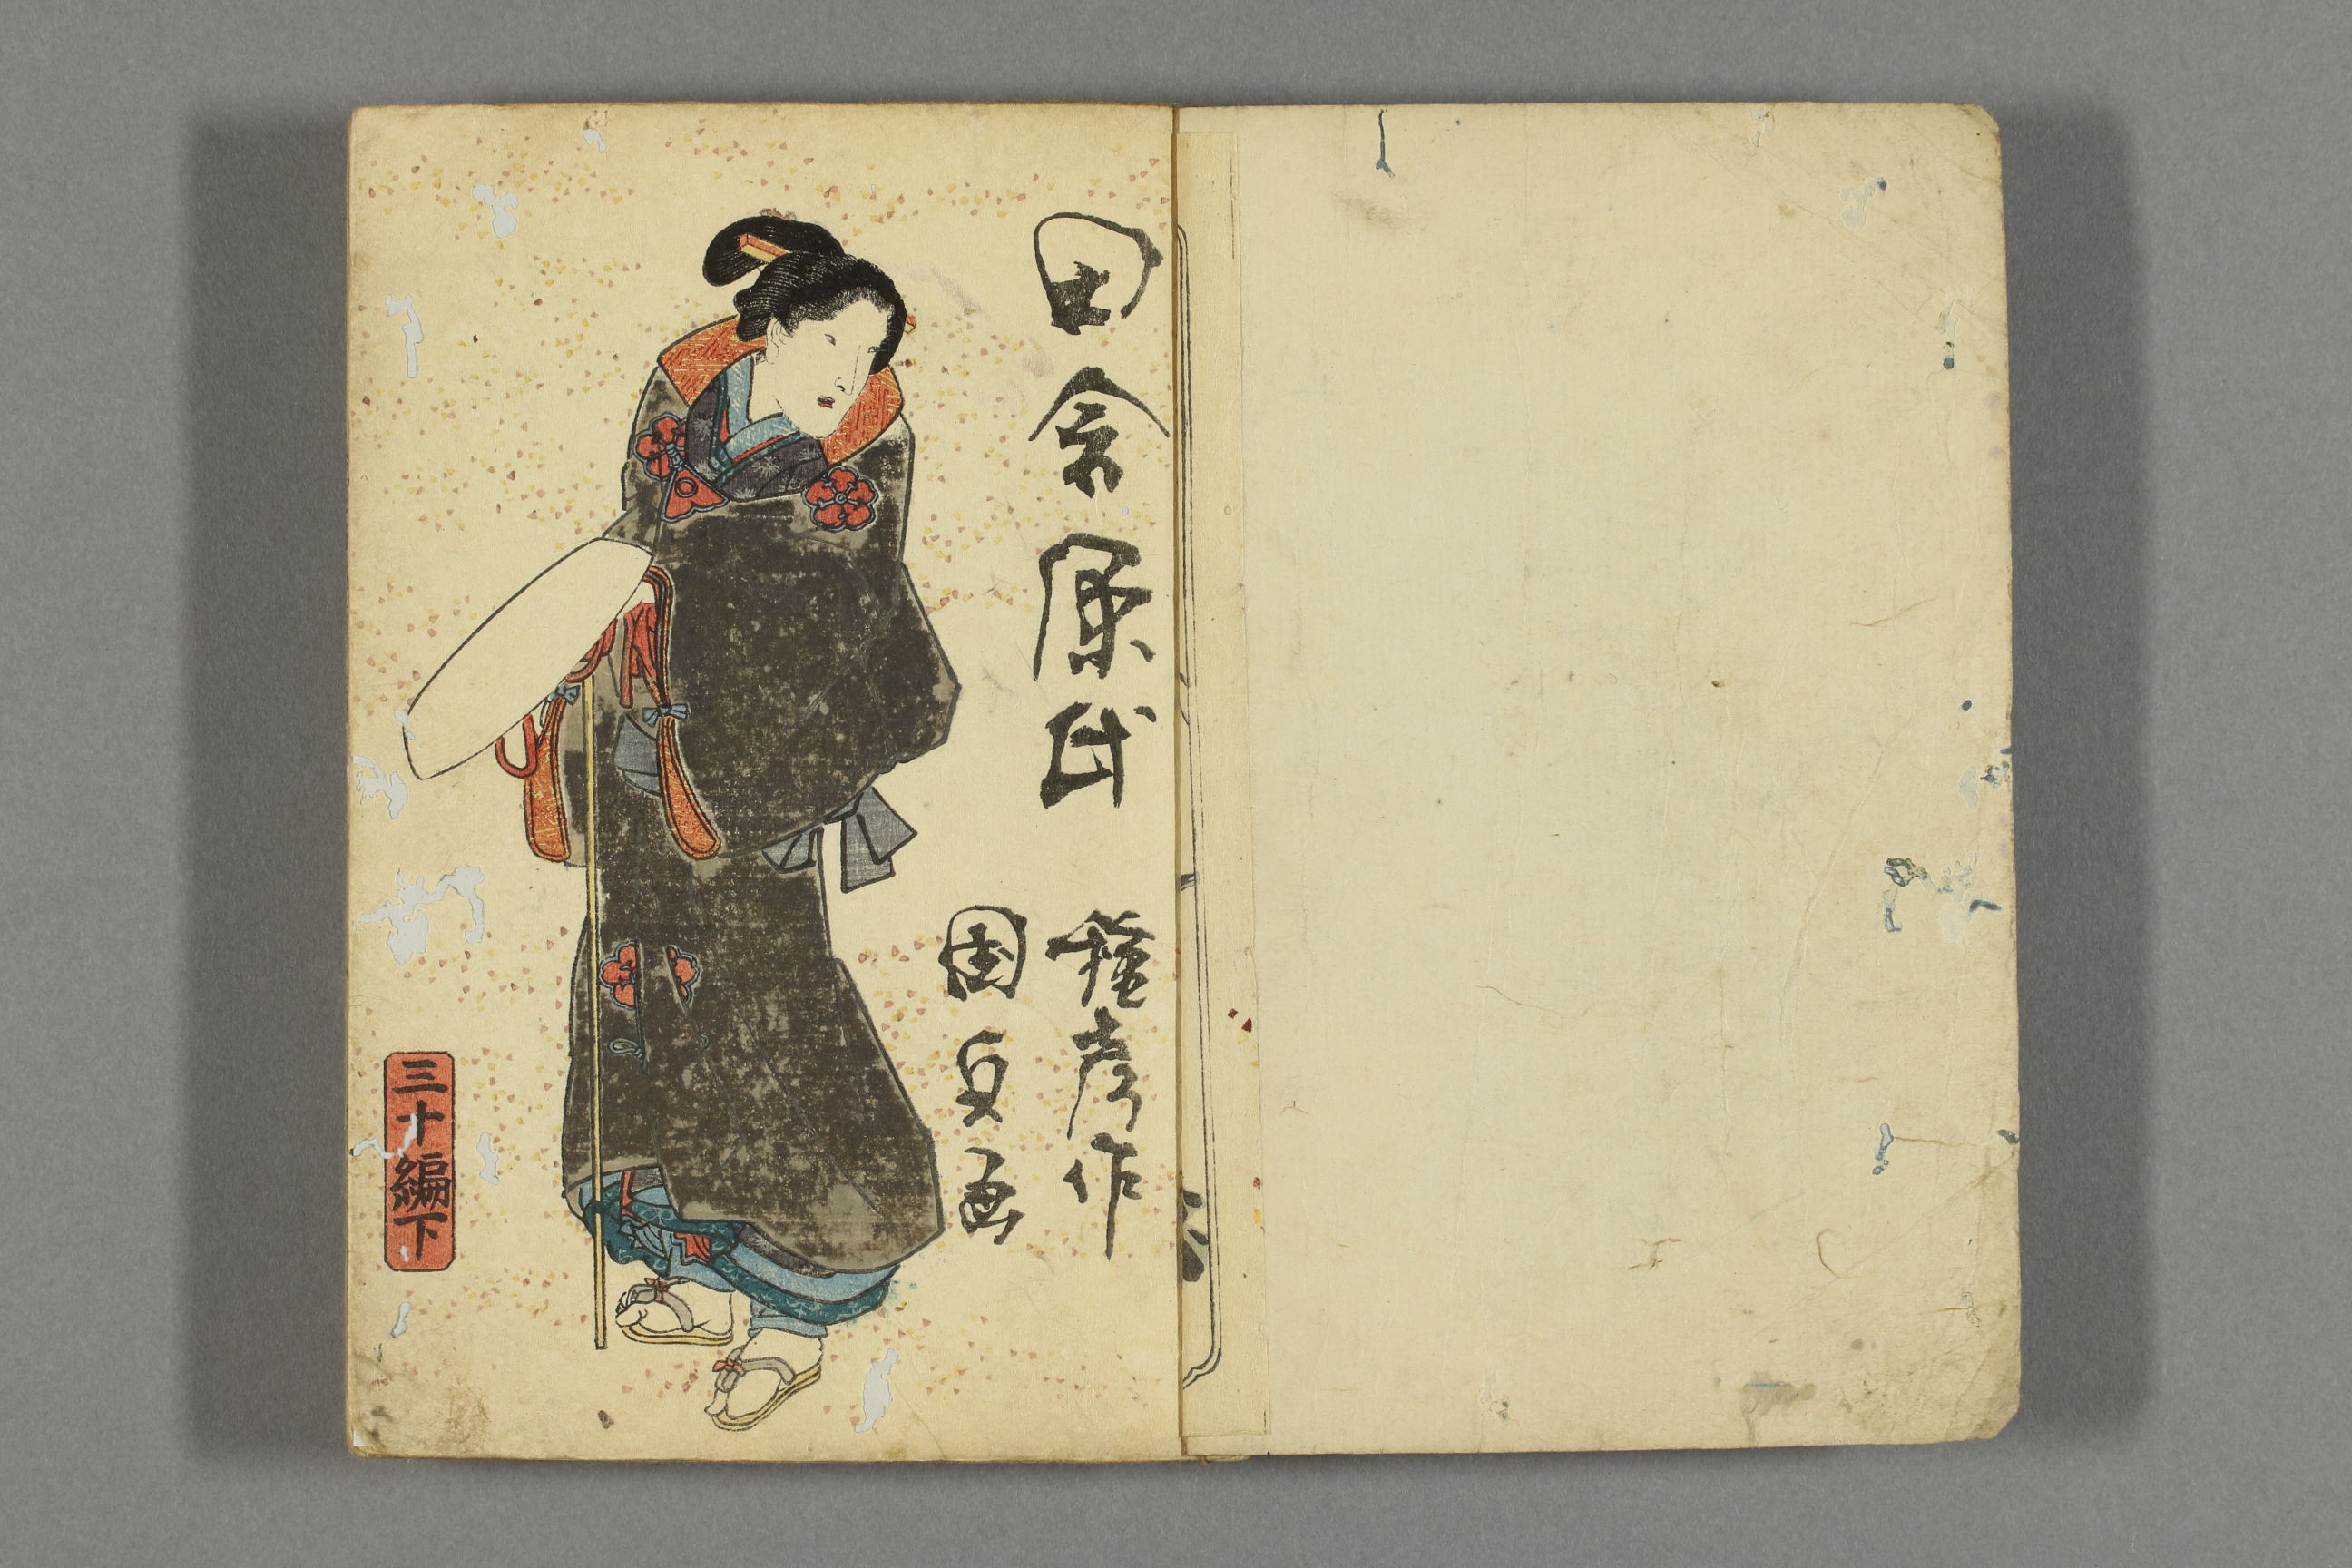 田舎源氏
種彦作
国貞画
三十編下